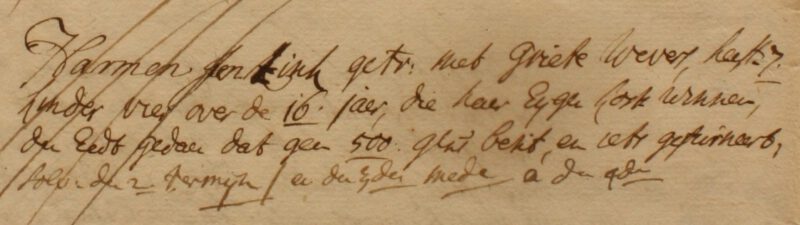 Harmen Jentink getr: met Griete Wevers, heeft 7.
kinder vier over de 16. jaer, die haer Eygen kost winnen,
den Eedt gedaen dat geen 500. glns besit, en iets gefurneert,
den 2n termijn en den 3den mede a den 4den